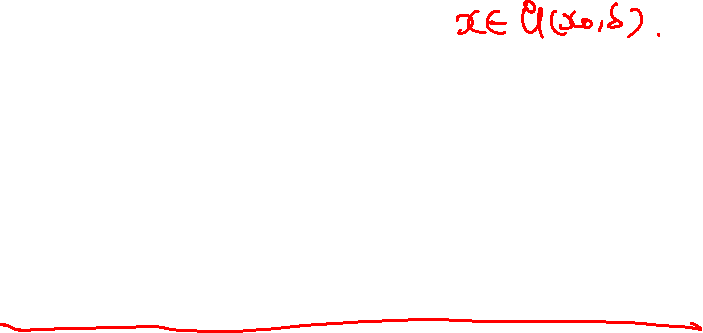 x∈Ů(x₀,δ).